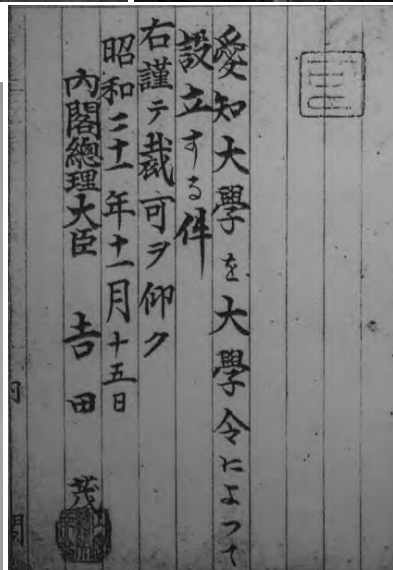 愛知大學を大學令によつて
設立する件
右謹テ裁可ヲ仰ク
昭和二十一年十一月十五日
內閣總理大臣 吉田茂
內閣